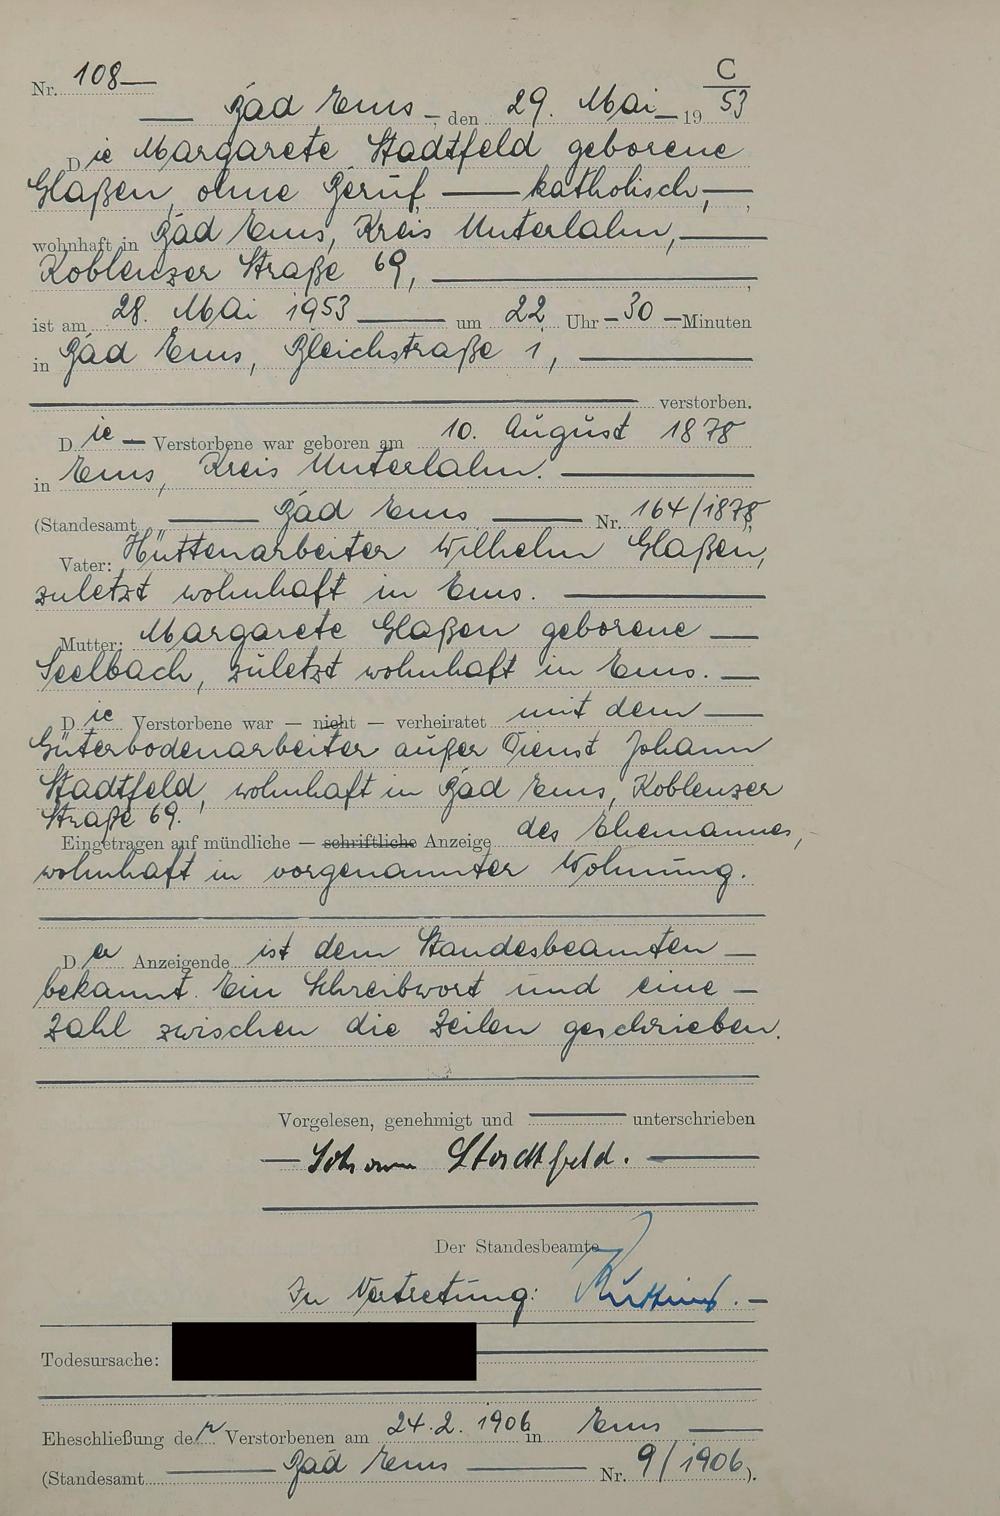 C
Nr. 108
Bad Ems, den 29. Mai 1953
Die Margarete Stadtfeld geborene
Glaßen, ohne Beruf katholisch,
wohnhaft in Bad Ems, Kreis Unterlahn,
Koblenzer Straße 69,
ist am 28. Mai 1953 um 22 Uhr 30 Minuten
in Bad Ems, Bleichstraße 1,
verstorben.
Die Verstorbene war geboren am 10. August 1878
in Ems, Kreis Unterlahn.
(Standesamt Bad Ems Nr. 164/1878)
Vater: Hüttenarbeiter Wilhelm Glaßen,
zuletzt wohnhaft in Ems.
Mutter: Margarete Glaßen geborene
Seelbach, zuletzt wohnhaft in Ems.
Die Verstorbene war — nicht — verheiratet mit dem
Güterbodenarbeiter außer Dienst Johann
Stadtfeld, wohnhaft in Bad Ems, Koblenzer
Straße 69.
Eingetragen auf mündliche — schriftliche Anzeige des Ehemannes,
wohnhaft in vorgenannter Wohnung.
Der Anzeigende ist dem Standesbeamten
bekannt. Ein Schreibwort und eine
Zahl zwischen die Zeilen geschrieben.
Vorgelesen, genehmigt und unterschrieben
Johann Stadtfeld.
Der Standesbeamte
In Vertretung:
Todesursache:
Eheschließung der Verstorbenen am 24.2.1906 in Ems
(Standesamt Bad Ems Nr. 9/1906).